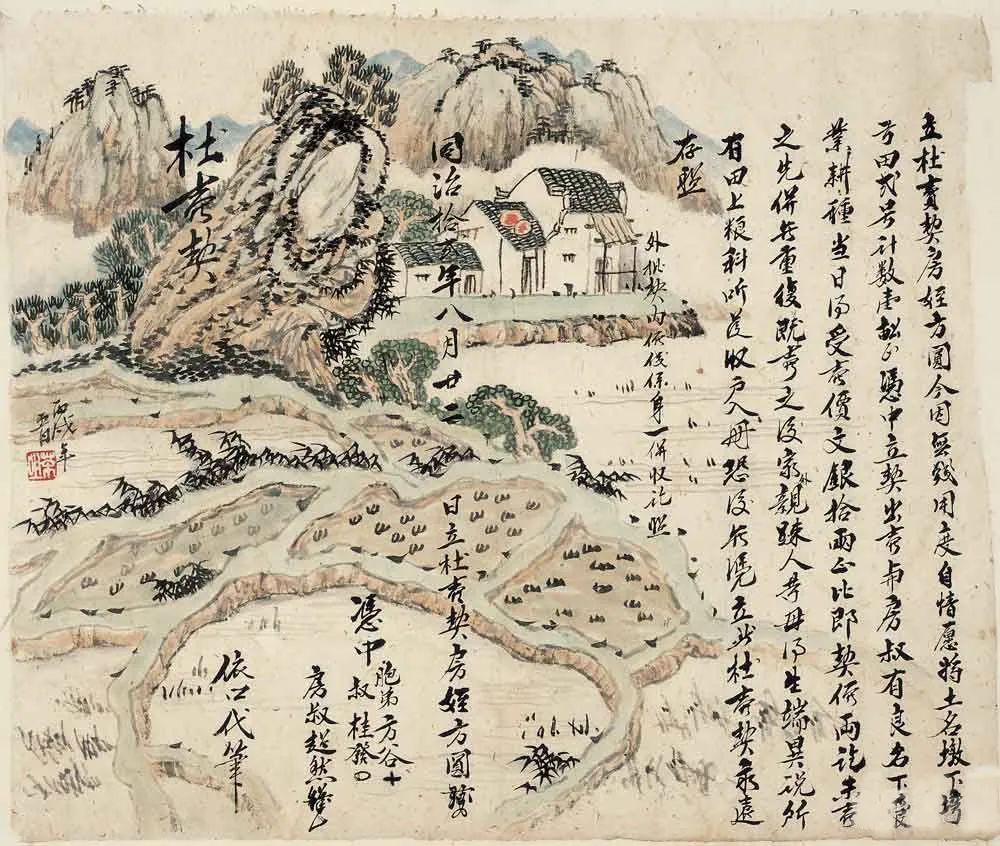 立杜賣契房姪方圓今因無錢用度自情愿将土名墩下塆
田弍号計數壹畝正憑中立契出賣與房叔有良名下
業耕種當日淂受賣價文銀拾兩正比即契價兩訖未賣
之先併無重復既賣之後家外親踈人等毋淂生端異説所
有田上粮科所道收户入册恐後無憑立此杜賣契永遠
存照
外批契內價後保身一併收訖照
同治拾年八月廿二日立杜賣契房姪方圓
憑中
胞弟方谷十
叔桂發〇
房叔起然
依口代筆
杜賣契
丙戌年